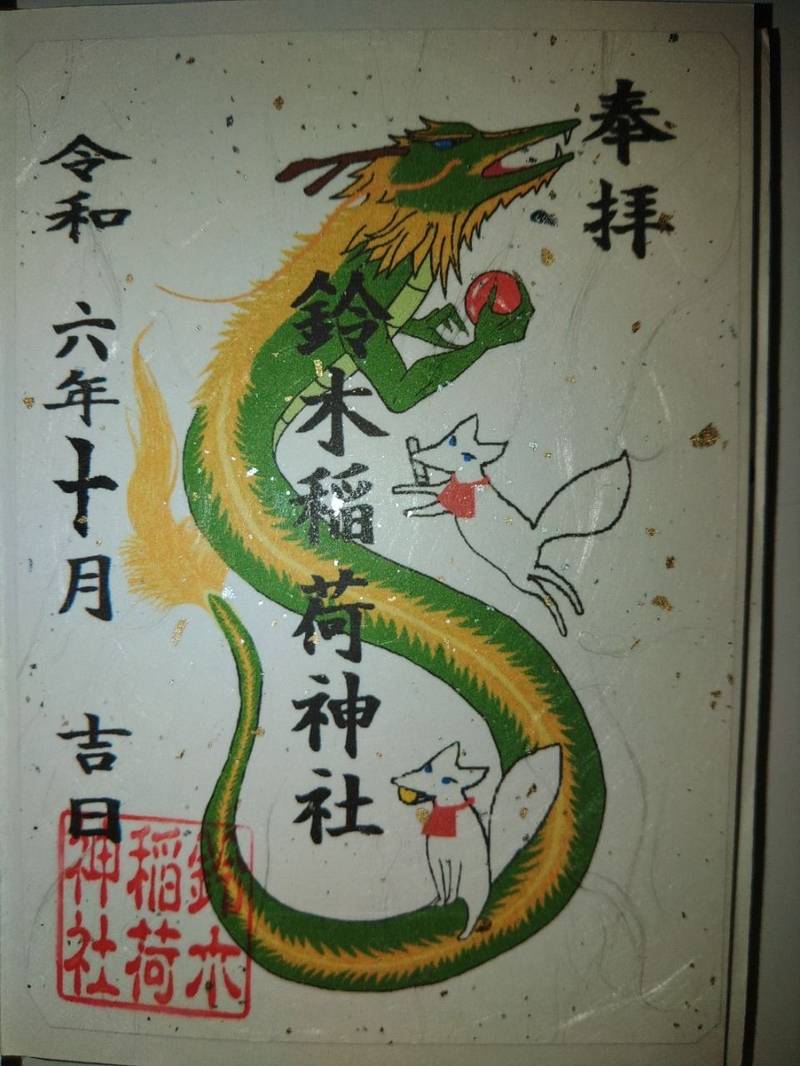 奉拝
鈴木稲荷神社
令和 六年十月 吉日
鈴木
稲荷
神社